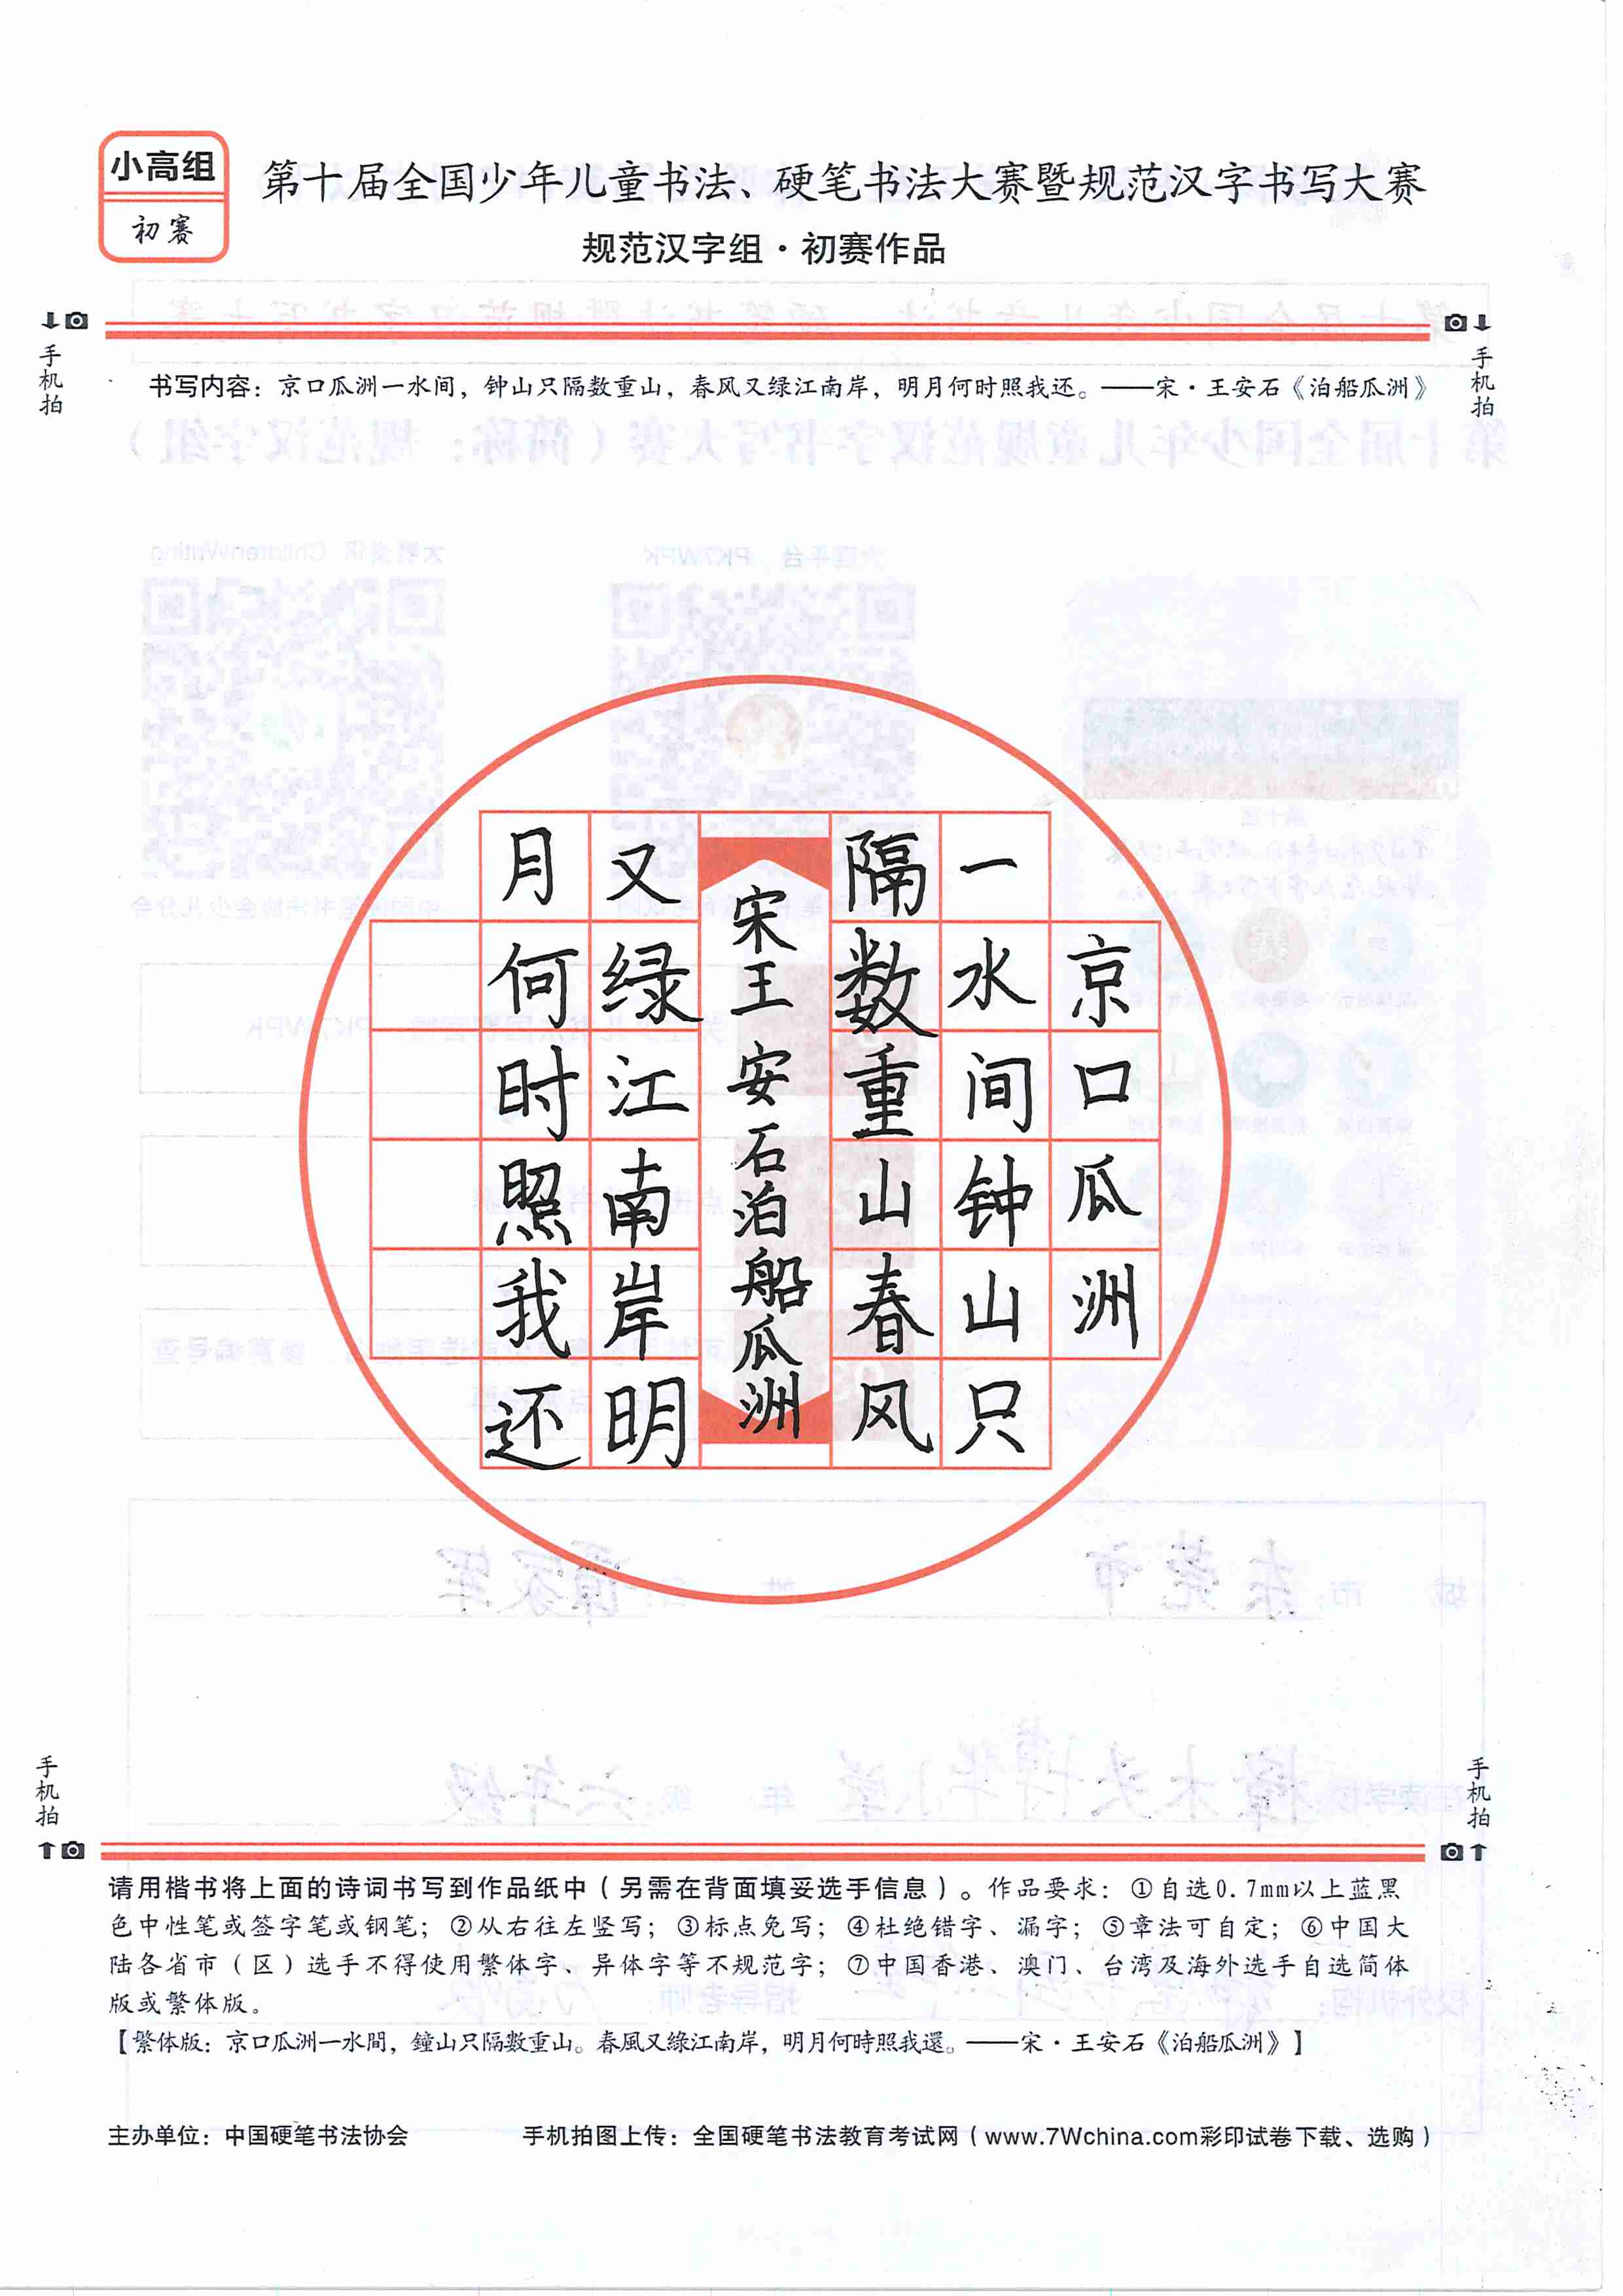 小高组
初赛
第十届全国少年儿童书法、硬笔书法大赛暨规范汉字书写大赛
规范汉字组·初赛作品
手机拍
手机拍
书写内容：京口瓜洲一水间，钟山只隔数重山，春风又绿江南岸，明月何时照我还。——宋·王安石《泊船瓜洲》
京口瓜洲
一水间钟山只
隔数重山春风
宋王安石泊船瓜洲
又绿江南岸明
月何时照我还
手机拍
手机拍
请用楷书将上面的诗词书写到作品纸中（另需在背面填妥选手信息）。作品要求：①自选0.7mm以上蓝黑
色中性笔或签字笔或钢笔；②从右往左竖写；③标点免写；④杜绝错字、漏字；⑤章法可自定；⑥中国大
陆各省市（区）选手不得使用繁体字、异体字等不规范字；⑦中国香港、澳门、台湾及海外选手自选简体
版或繁体版。
【繁体版：京口瓜洲一水間，鐘山只隔數重山。春風又綠江南岸，明月何時照我還。——宋·王安石《泊船瓜洲》】
主办单位：中国硬笔书法协会
手机拍图上传：全国硬笔书法教育考试网（www.7Wchina.com彩印试卷下载、选购）